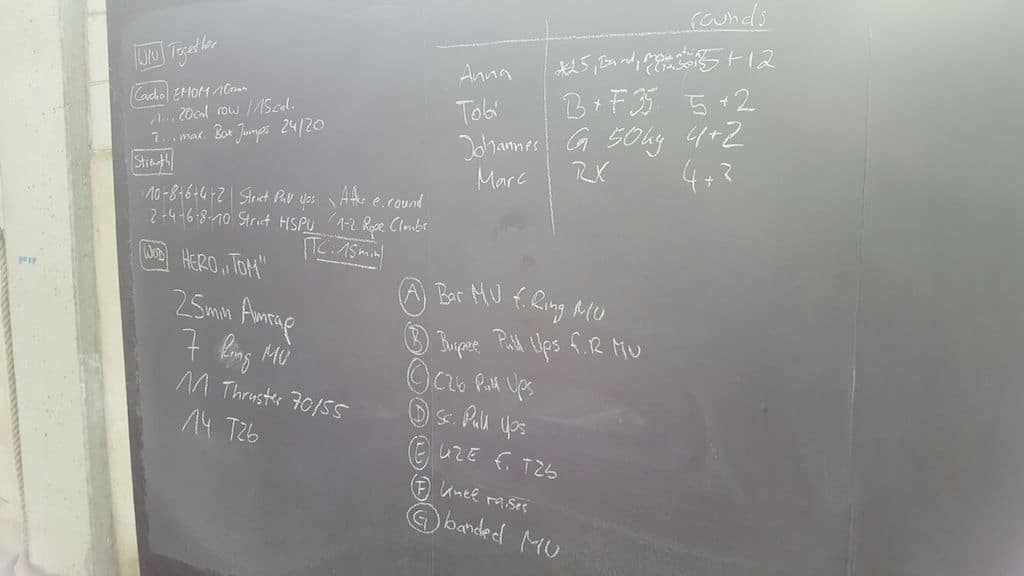 WU Together
Cardio EMOM 10min
1... 20cal row / 15cal.
2... max. Box Jumps 24/20
Strength
10-8-6-4-2 | Strict Pull Ups \ After e. round
2-4-6-8-10 | Strict HSPU / 1-2 Rope Climbs
TC: 15min
WOD HERO „TOM"
25min Amrap
7 Ring MU
11 Thruster 70/55
14 T2b
rounds
Anna 25, Band, mountain climbers 5+12
Tobi B+F 35 5+2
Johannes G 50kg 4+2
Marc RX 4+3
A Bar MU f. Ring MU
B Burpee Pull Ups f. R MU
C C2b Pull Ups
D Sc. Pull Ups
E K2E f. T2b
F knee raises
G banded MU